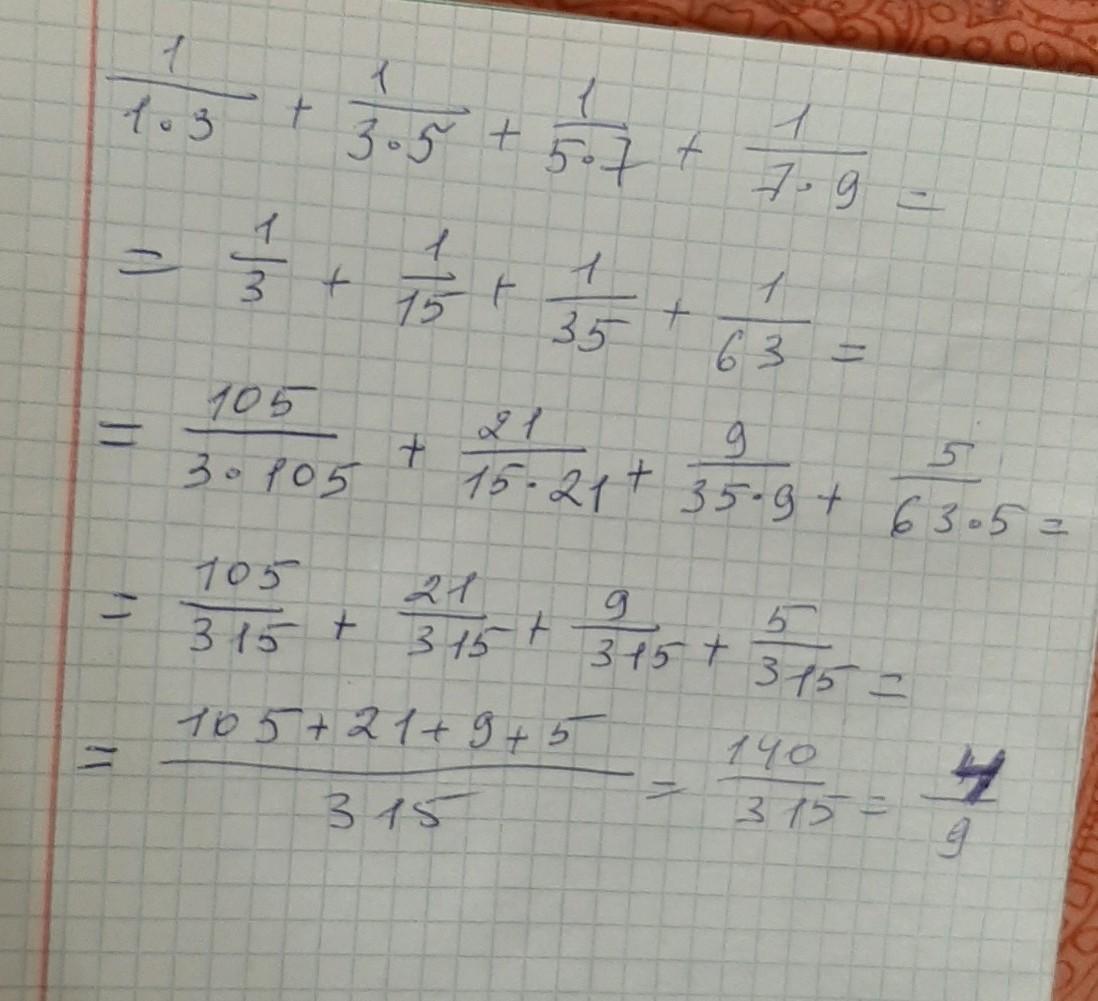 1/(1·3) + 1/(3·5) + 1/(5·7) + 1/(7·9) =
= 1/3 + 1/15 + 1/35 + 1/63 =
= 105/(3·105) + 21/(15·21) + 9/(35·9) + 5/(63·5) =
= 105/315 + 21/315 + 9/315 + 5/315 =
= (105+21+9+5)/315 = 140/315 = 4/9